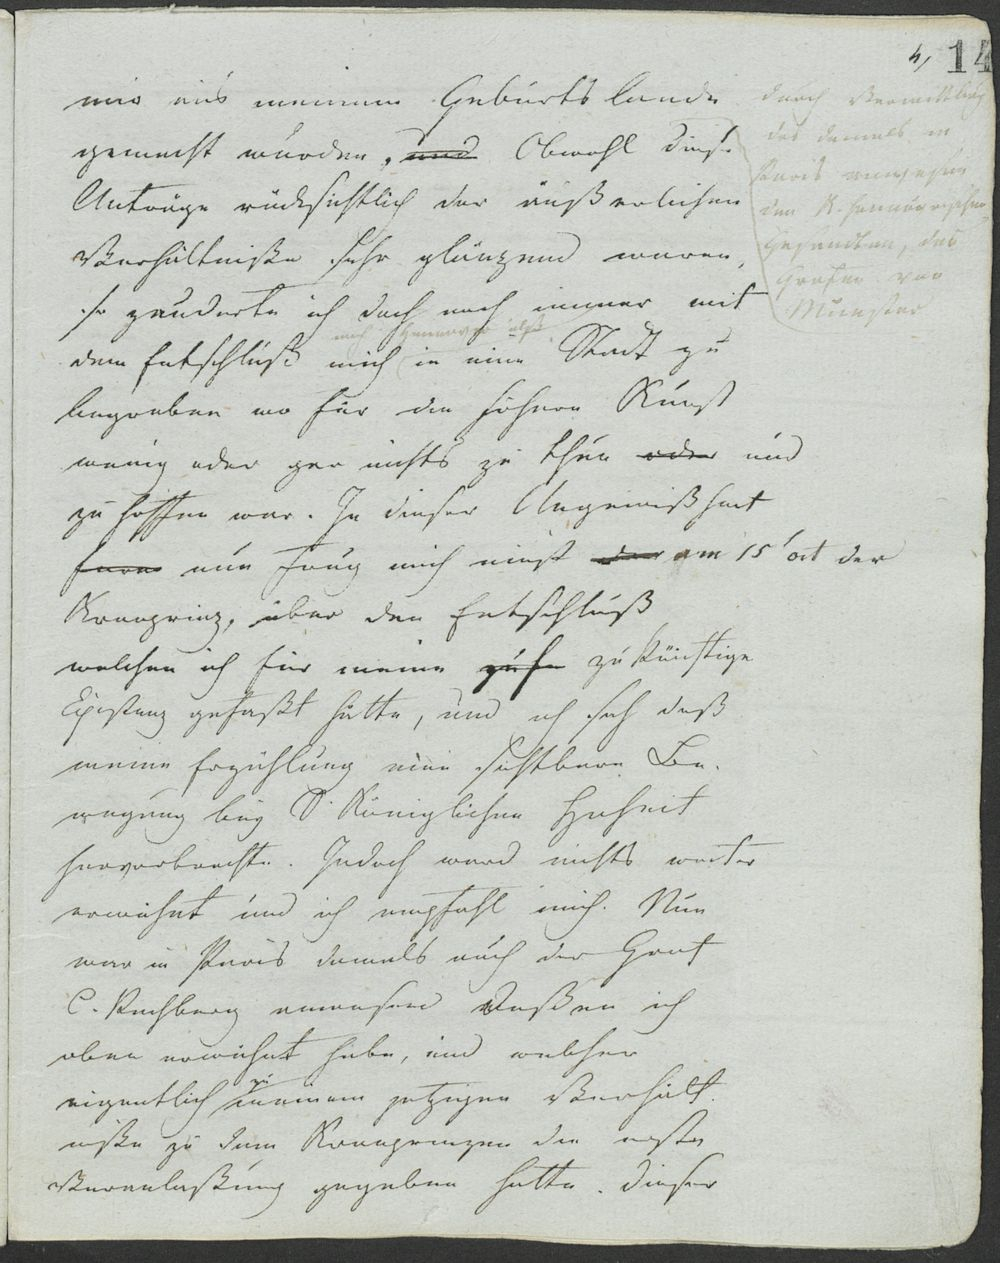 4, 14
mir aus meinem Geburts lande
gemacht wurden, und Obwohl diese
Anträge rücksichtlich der äußerlichen
Verhältniße sehr glänzend waren,
so zauderte ich doch noch immer mit
nach Hannover als
dem Entschluß mich in eine Stadt zu
begraben wo für die höhere Kunst
wenig oder gar nichts zu thun oder und
zu hoffen war. In dieser Ungewißheit
nun frug mich einst am 15 oct der
Kronprinz, über den Entschluß
welchen ich für meine zukünftige
Existenz gefaßt hätte, und ich sah daß
meine Erzählung eine sichtbare Be-
wegung bey S. Königlichen Hoheit
hervorbrachte. Jedoch ward nichts weiter
erwähnt und ich empfahl mich. Nun
war in Paris damals auch der Graf
C. Rechberg anwesend deßen ich
oben erwähnt habe, und welcher
zu
eigentlich meinem jetzigen Verhält-
niße zu dem Kronprinzen die erste
Veranlaßung gegeben hatte. Dieser
durch Vermittlung
des damals in
Paris anwesen
den K. hannövrischen
Gesandten, des
Grafen von
Münster